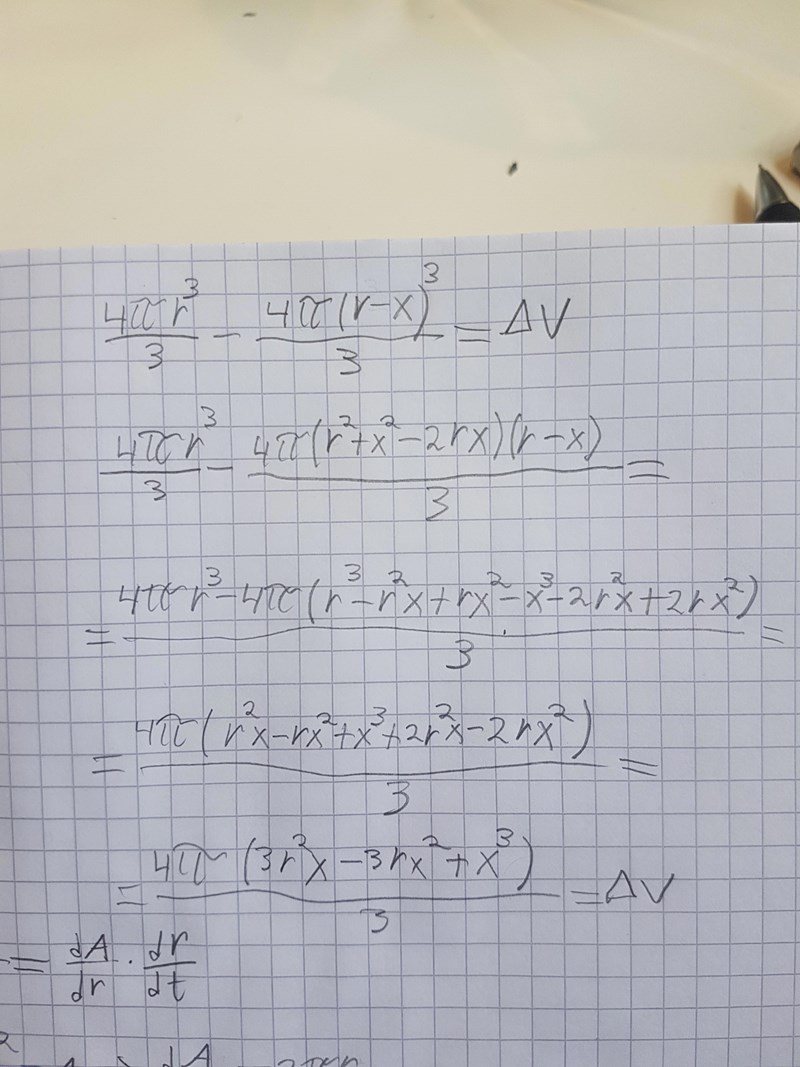 4πr³/3 − 4π(r−x)³/3 = ΔV
4πr³/3 − 4π(r²+x²−2rx)(r−x)/3 =
= (4πr³−4π(r³−r²x+rx²−x³−2r²x+2rx²))/3 =
= 4π(r²x−rx²+x³+2r²x−2rx²)/3 =
= 4π(3r²x−3rx²+x³)/3 = ΔV
= dA/dr · dr/dt